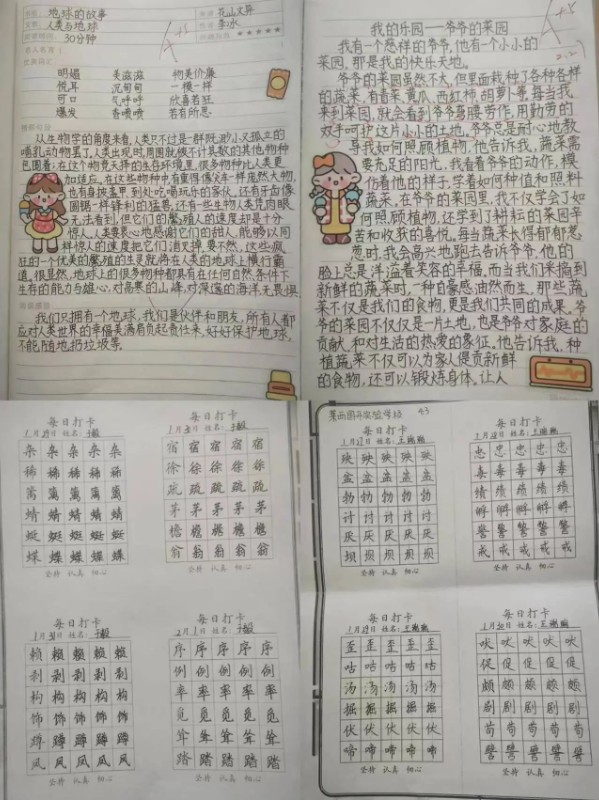 地球的故事
花山文艺
人类与地球
李冰
30分钟
A+5
明媚 美滋滋 物美价廉
悦耳 沉甸甸 一模一样
可口 气呼呼 欣喜若狂
爆发 香喷喷 若有所思
从生物学的角度来看,人类只不过是一群既渺小又孤立的
哺乳动物罢了,人类出现时,周围就被不计其数的其他物种
包围着,在这个物竞天择的生存环境里,很多物种比人类更
加适应,在这些物种中有重得像火车一样庞然大物,
也有身披盔甲,到处吃喝玩乐的家伙,还有牙齿像
圆锯一样锋利的猛兽,还有一些生物人类凭肉眼
无法看到,但它们的繁殖人的速度却是十分
惊人,人类衷心地感谢它们的甜人,能够以同
样惊人的速度把它们消灭掉,要不然,这些疯
狂的一个优美的繁殖的生灵就将在人类的地球上横行霸
道,很显然,地球上的很多物种都具有在任何自然条件下
生存的能力与雄心,对高寒的山峰,对深邃的海洋,无畏惧
我们只拥有个地球,我们是伙伴和朋友,所有人都
应对人类世界的幸福美满肩负起责任来,好好保护地球,
不能随地扔垃圾等.
我的乐园——爷爷的菜园
A+5
我有一个慈祥的爷爷,他有一个小小的
菜园,那是我的快乐天地。
爷爷的菜园虽然不大,但里面栽种了各种各样
的蔬菜,有青菜,黄瓜,西红柿,胡萝卜等,每当我
来到菜园,就会看到爷爷弯腰劳作,用勤劳的
双手呵护这片小小的土地,爷爷总是耐心地教
导我如何照顾植物,他告诉我,蔬菜需
要充足的阳光,我看着爷爷的动作,模
仿着他的样子,学着如何种值和照料
蔬菜,在爷爷的菜园里,我不仅学会了如
何照顾植物,还学到了耕耘的菜园辛
苦和收获的喜悦。每当蔬菜长得郁郁葱
葱时,我会高兴地跑去告诉爷爷,他的
脸上总是洋溢着笑容的幸福,而当我们采摘到
新鲜的蔬菜时,一种自豪感油然而生,那些蔬
菜不仅是我们的食物,更是我们共同的成果。爷
爷的菜园不仅仅是一片土地,也是爷爷对家庭的
贡献,和对生活的热爱的象征,他告诉我,种
植蔬菜不仅可以为家人提贡新鲜
的食物,还可以锻炼身体,让人
每日打卡
1月29日 姓名:
杂 杂 杂 杂 杂
稀 稀 稀 稀 稀
篱 篱 篱 篱 篱
蜻 蜻 蜻 蜻 蜻
蜓 蜓 蜓 蜓 蜓
蝶 蝶 蝶 蝶 蝶
坚持 认真 细心
每日打卡
宿 宿 宿 宿 宿
徐 徐 徐 徐 徐
疏 疏 疏 疏 疏
茅 茅 茅 茅 茅
檐 檐 檐 檐 檐
翁 翁 翁 翁 翁
坚持 认真 细心
每日打卡
赖 赖 赖 赖 赖
剥 剥 剥 剥 剥
构 构 构 构 构
饰 饰 饰 饰 饰
蹲 蹲 蹲 蹲 蹲
凤 凤 凤 凤 凤
坚持 认真 细心
每日打卡
2月1日 姓名:
序 序 序 序 序
例 例 例 例 例
率 率 率 率 率
觅 觅 觅 觅 觅
耸 耸 耸 耸 耸
踏 踏 踏 踏 踏
坚持 认真 细心
莱西国开实验学校 43
每日打卡
殃 殃 殃 殃 殃
盆 盆 盆 盆 盆
勃 勃 勃 勃 勃
讨 讨 讨 讨 讨
厌 厌 厌 厌 厌
坝 坝 坝 坝 坝
坚持 认真 细心
每日打卡
忠 忠 忠 忠 忠
毒 毒 毒 毒 毒
绩 绩 绩 绩 绩
孵 孵 孵 孵 孵
警 警 警 警 警
戒 戒 戒 戒 戒
坚持 认真 细心
每日打卡
歪 歪 歪 歪 歪
咕 咕 咕 咕 咕
汤 汤 汤 汤 汤
掘 掘 掘 掘 掘
伏 伏 伏 伏 伏
啼 啼 啼 啼 啼
坚持 认真 细心
每日打卡
吠 吠 吠 吠 吠
促 促 促 促 促
颇 颇 颇 颇 颇
剧 剧 剧 剧 剧
苟 苟 苟 苟 苟
譬 譬 譬 譬 譬
坚持 认真 细心